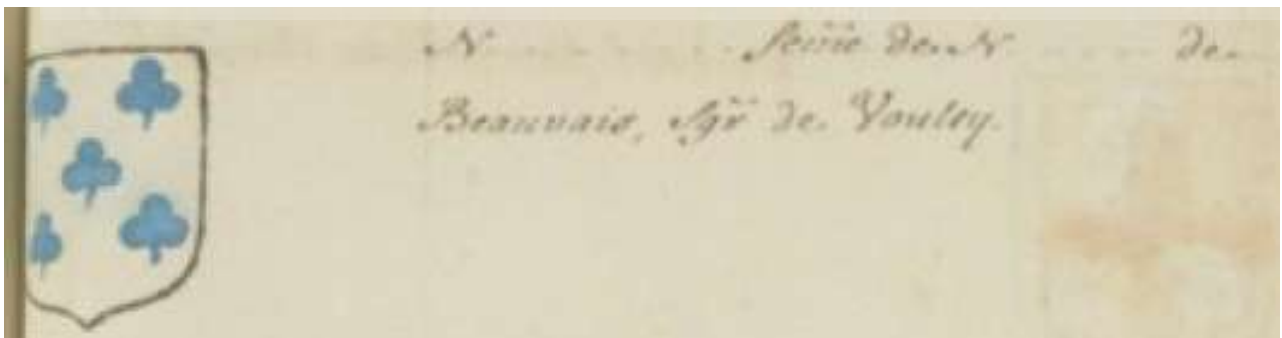 N . . . . . . . . femẽ de N . . . . . de
Beauvais, Sgr̃ de Vouley.